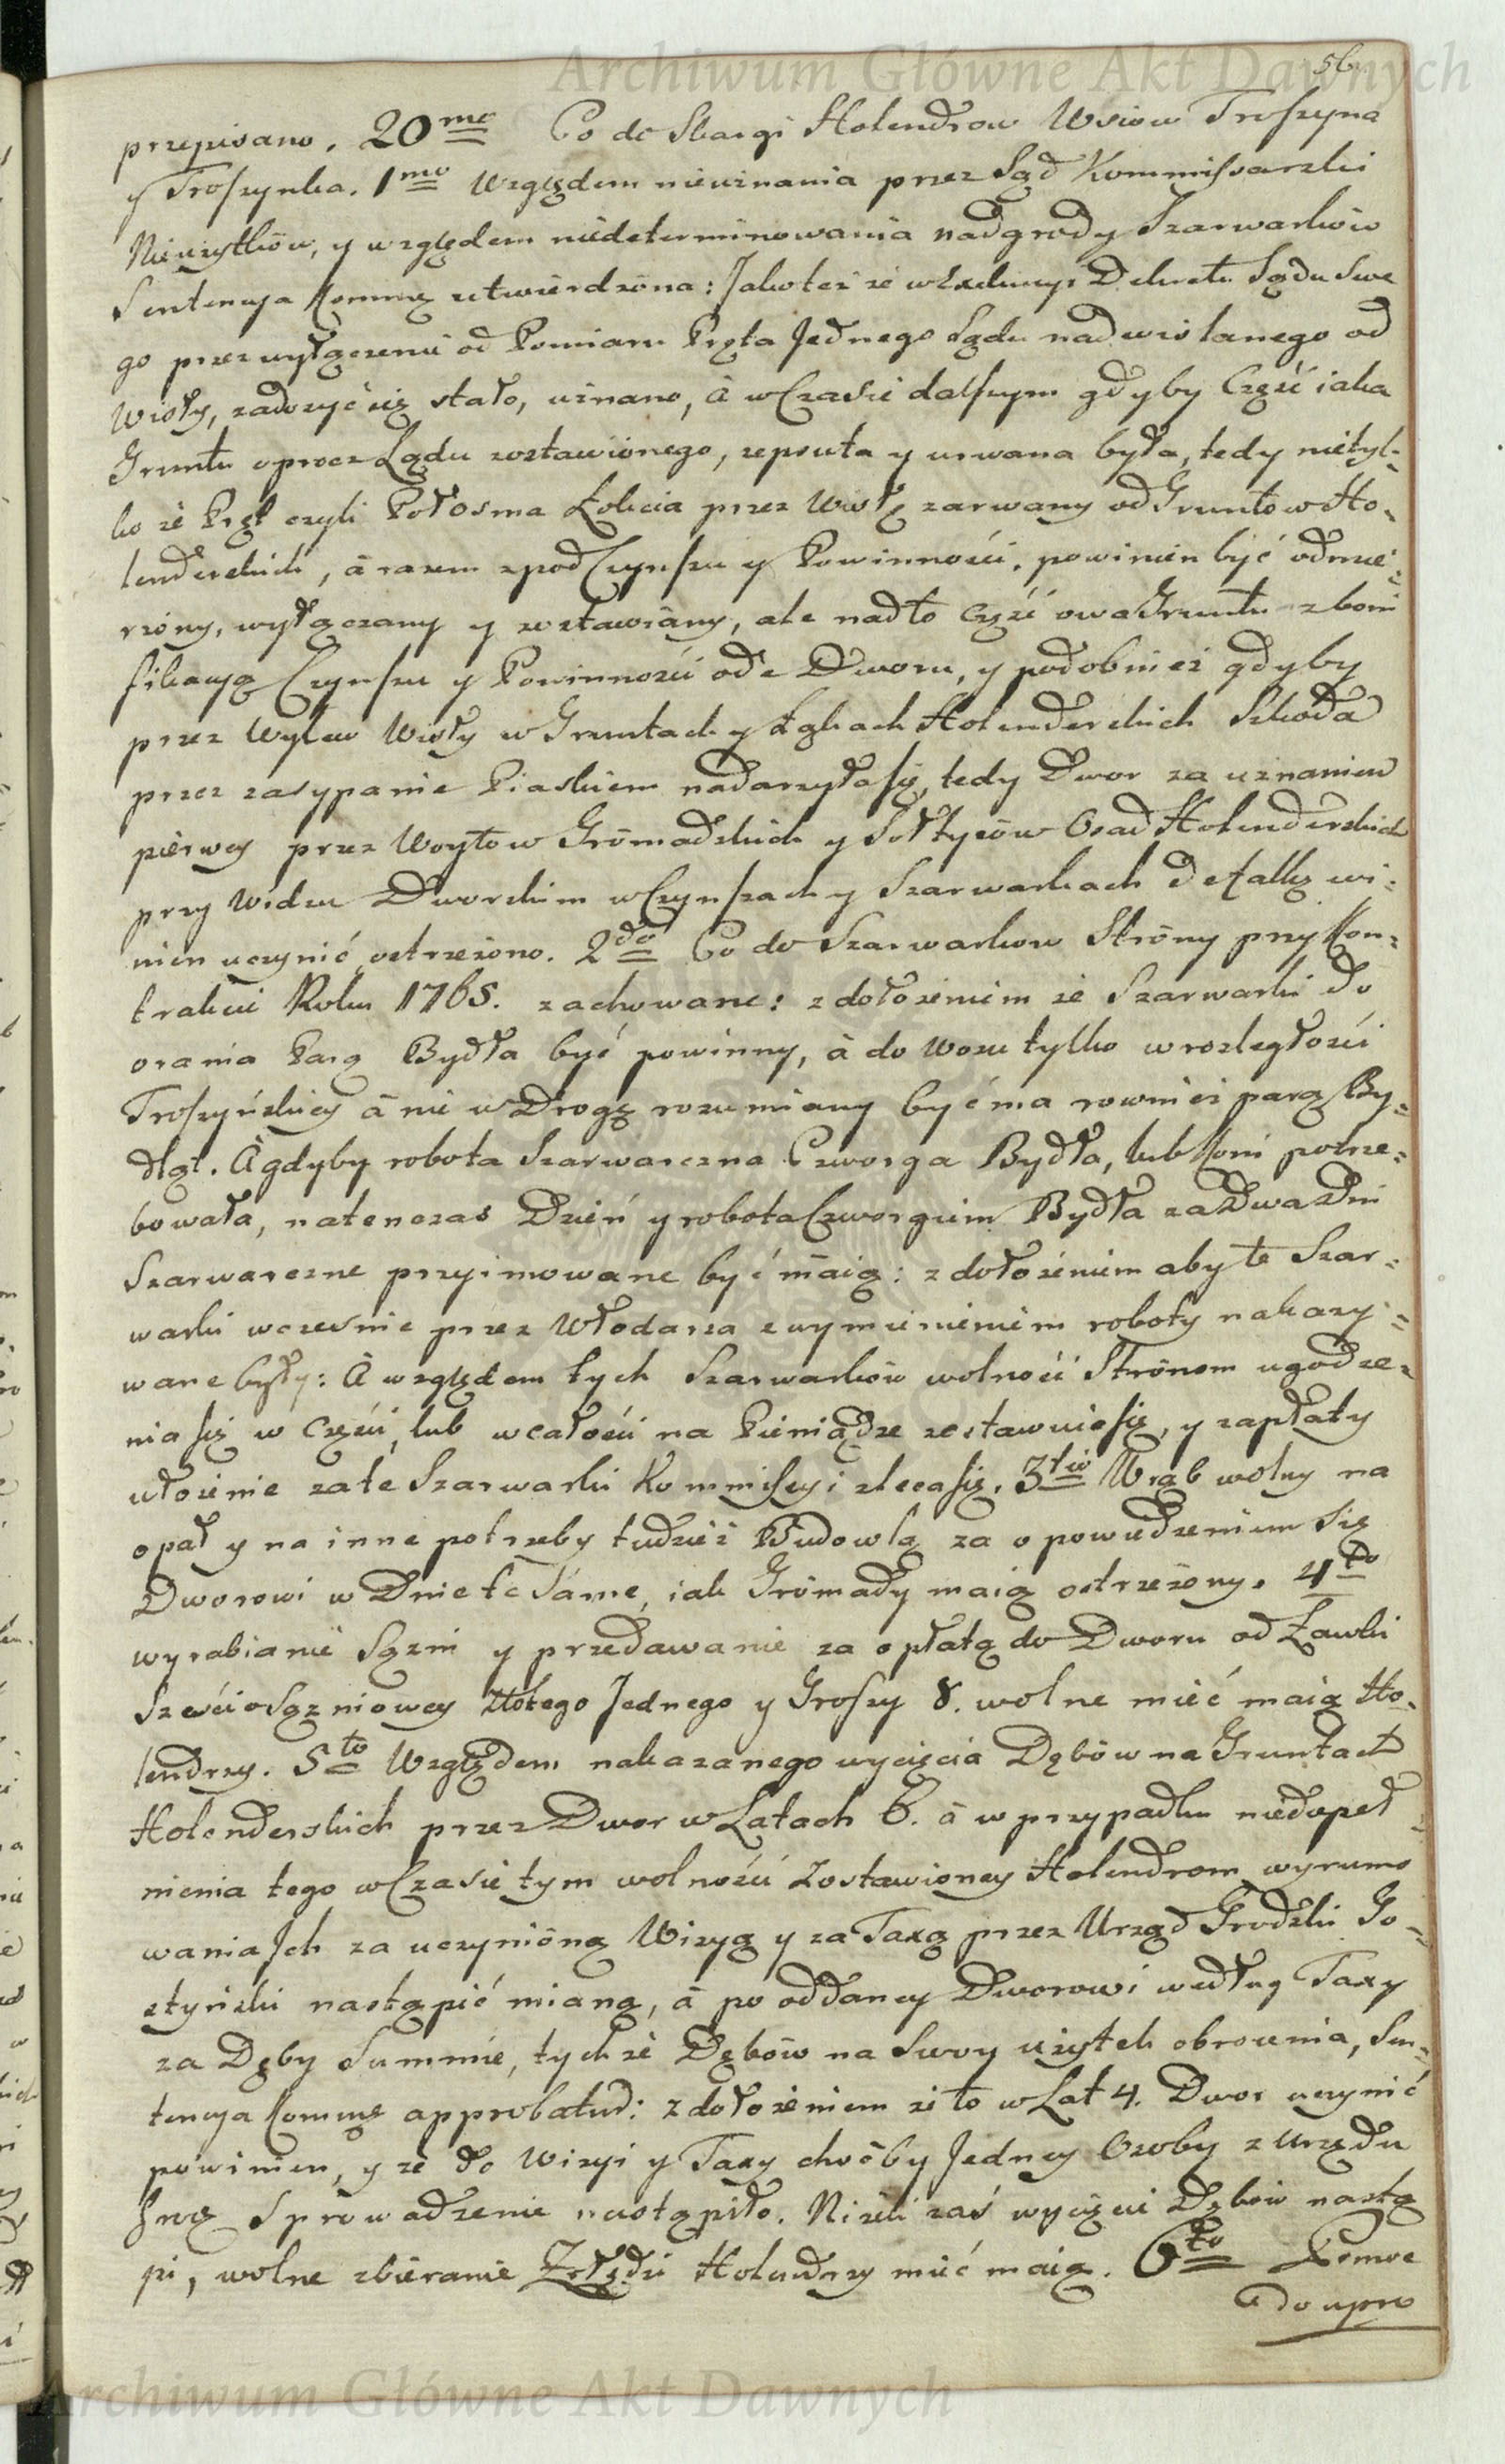 Archiwum Główne Akt Dawnych
56
przepisano. 20mo Co do Skargi Holendrow Wsiow Troszyna
y Troszynka. 1mo Względem nieuznania przez Sąd Kommissarzki
Nieużytków, y względem niedeterminowania nadgrody Szarwarków
Sentencya Commę utwierdzona: Jakoteż że Dekretu Sądu Swe
go przez wyłączenie od Pomiaru Pręta Jednego Lądu nadwislanego od
Wisły, zadosyć się stało, uznano, à w Czasie dalszym gdyby Część iaka
Gruntu oprocz Lądu zostawionego, zepsuta y urwana była, tedy nietyl-
ko że Pręt czyli Połosma Łokcia przez Wisłę zarwany od Gruntow Ho-
lenderskich, à razem zpod Czynszu y Powinności, powinien być odmie-
rzony, wyłączany y zostawiany, ale nadto część owa Gruntu z boni
fikacyą Czynszu y Powinności ode Dworu, y podobnież gdyby
przez Wylew Wisły w Gruntach y Łąkach Holenderskich Szkoda
przez zasypanie Piaskiem nadarzyła się, tedy Dwor za uznaniem
pierwey przez Woytow Gromadzkich y Sołtysów Osad Holenderskich
przy Widzu Dworskim w Czynszach y Szarwarkach defalkę wi-
nien uczynić ostrzeżono. 2do Co do Szarwarkow Strony przy Kon-
trakcie Roku 1765. zachowane: z dołożeniem że Szarwarki do
orania Parą Bydła być powinny, à do wozu tylko w rozległości
Troszyńskiey à nie w Drogę rozumiany być ma rownież parą By-
dląt. À gdyby robota Szarwarczna Czworga Bydła, lub Koni potrze-
bowała, natenczas Dzień y robota Czworgiem Bydła za Dwa Dni
Szarwarczne przyimowane być maią: z dołożeniem aby te Szar-
warki wczesnie przez Włodarza z wymienieniem roboty nakazy-
wane były: À względem tych Szarwarków wolność Stronom ugodze-
nia się w Części, lub w całości na Pieniądze zostawuie się, y zapłaty
ułożenie za te Szarwarki Kommissyi zleca się. 3tio Wrąb wolny na
opał y na inne potrzeby tudzież Budowlą za opowiedzeniem się
Dworowi w Dnie te Same, iak Gromady maią ostrzeżony. 4to
wyrabianie Sążni y przedawanie za opłatą do Dworu od Ławki
Sześciosążniowey Złotego Jednego y Groszy 8. wolne mieć maią Ho-
lendrzy. 5to Względem nakazanego wycięcia Dębów na Gruntach
Holenderskich przez Dwor w Latach 6. à w przypadku niedopeł-
nienia tego w Czasie tym wolności Zostawioney Holendrom wyrumo
wania Ich za uczynioną Wizyą y za Taxą przez Urząd Grodzki Go-
styński nastąpić mianą, à po oddaney Dworowi według Taxy
za Dęby Summie, tychże Dębów na Swoy użytek obrocenia, Sen-
tencya Commę approbatur: z dołożeniem że to w Lat 4. Dwor uczynić
powinien, y że do Wizyi y Taxy choćby Jedney Osoby z Urzędu
Sprowadzenie nastąpiło. Niżeli zaś wycięcie Dębów nastą
pi, wolne zbieranie Żołędzi Holendrzy mieć maią. 6to
do upro
Archiwum Główne Akt Dawnych